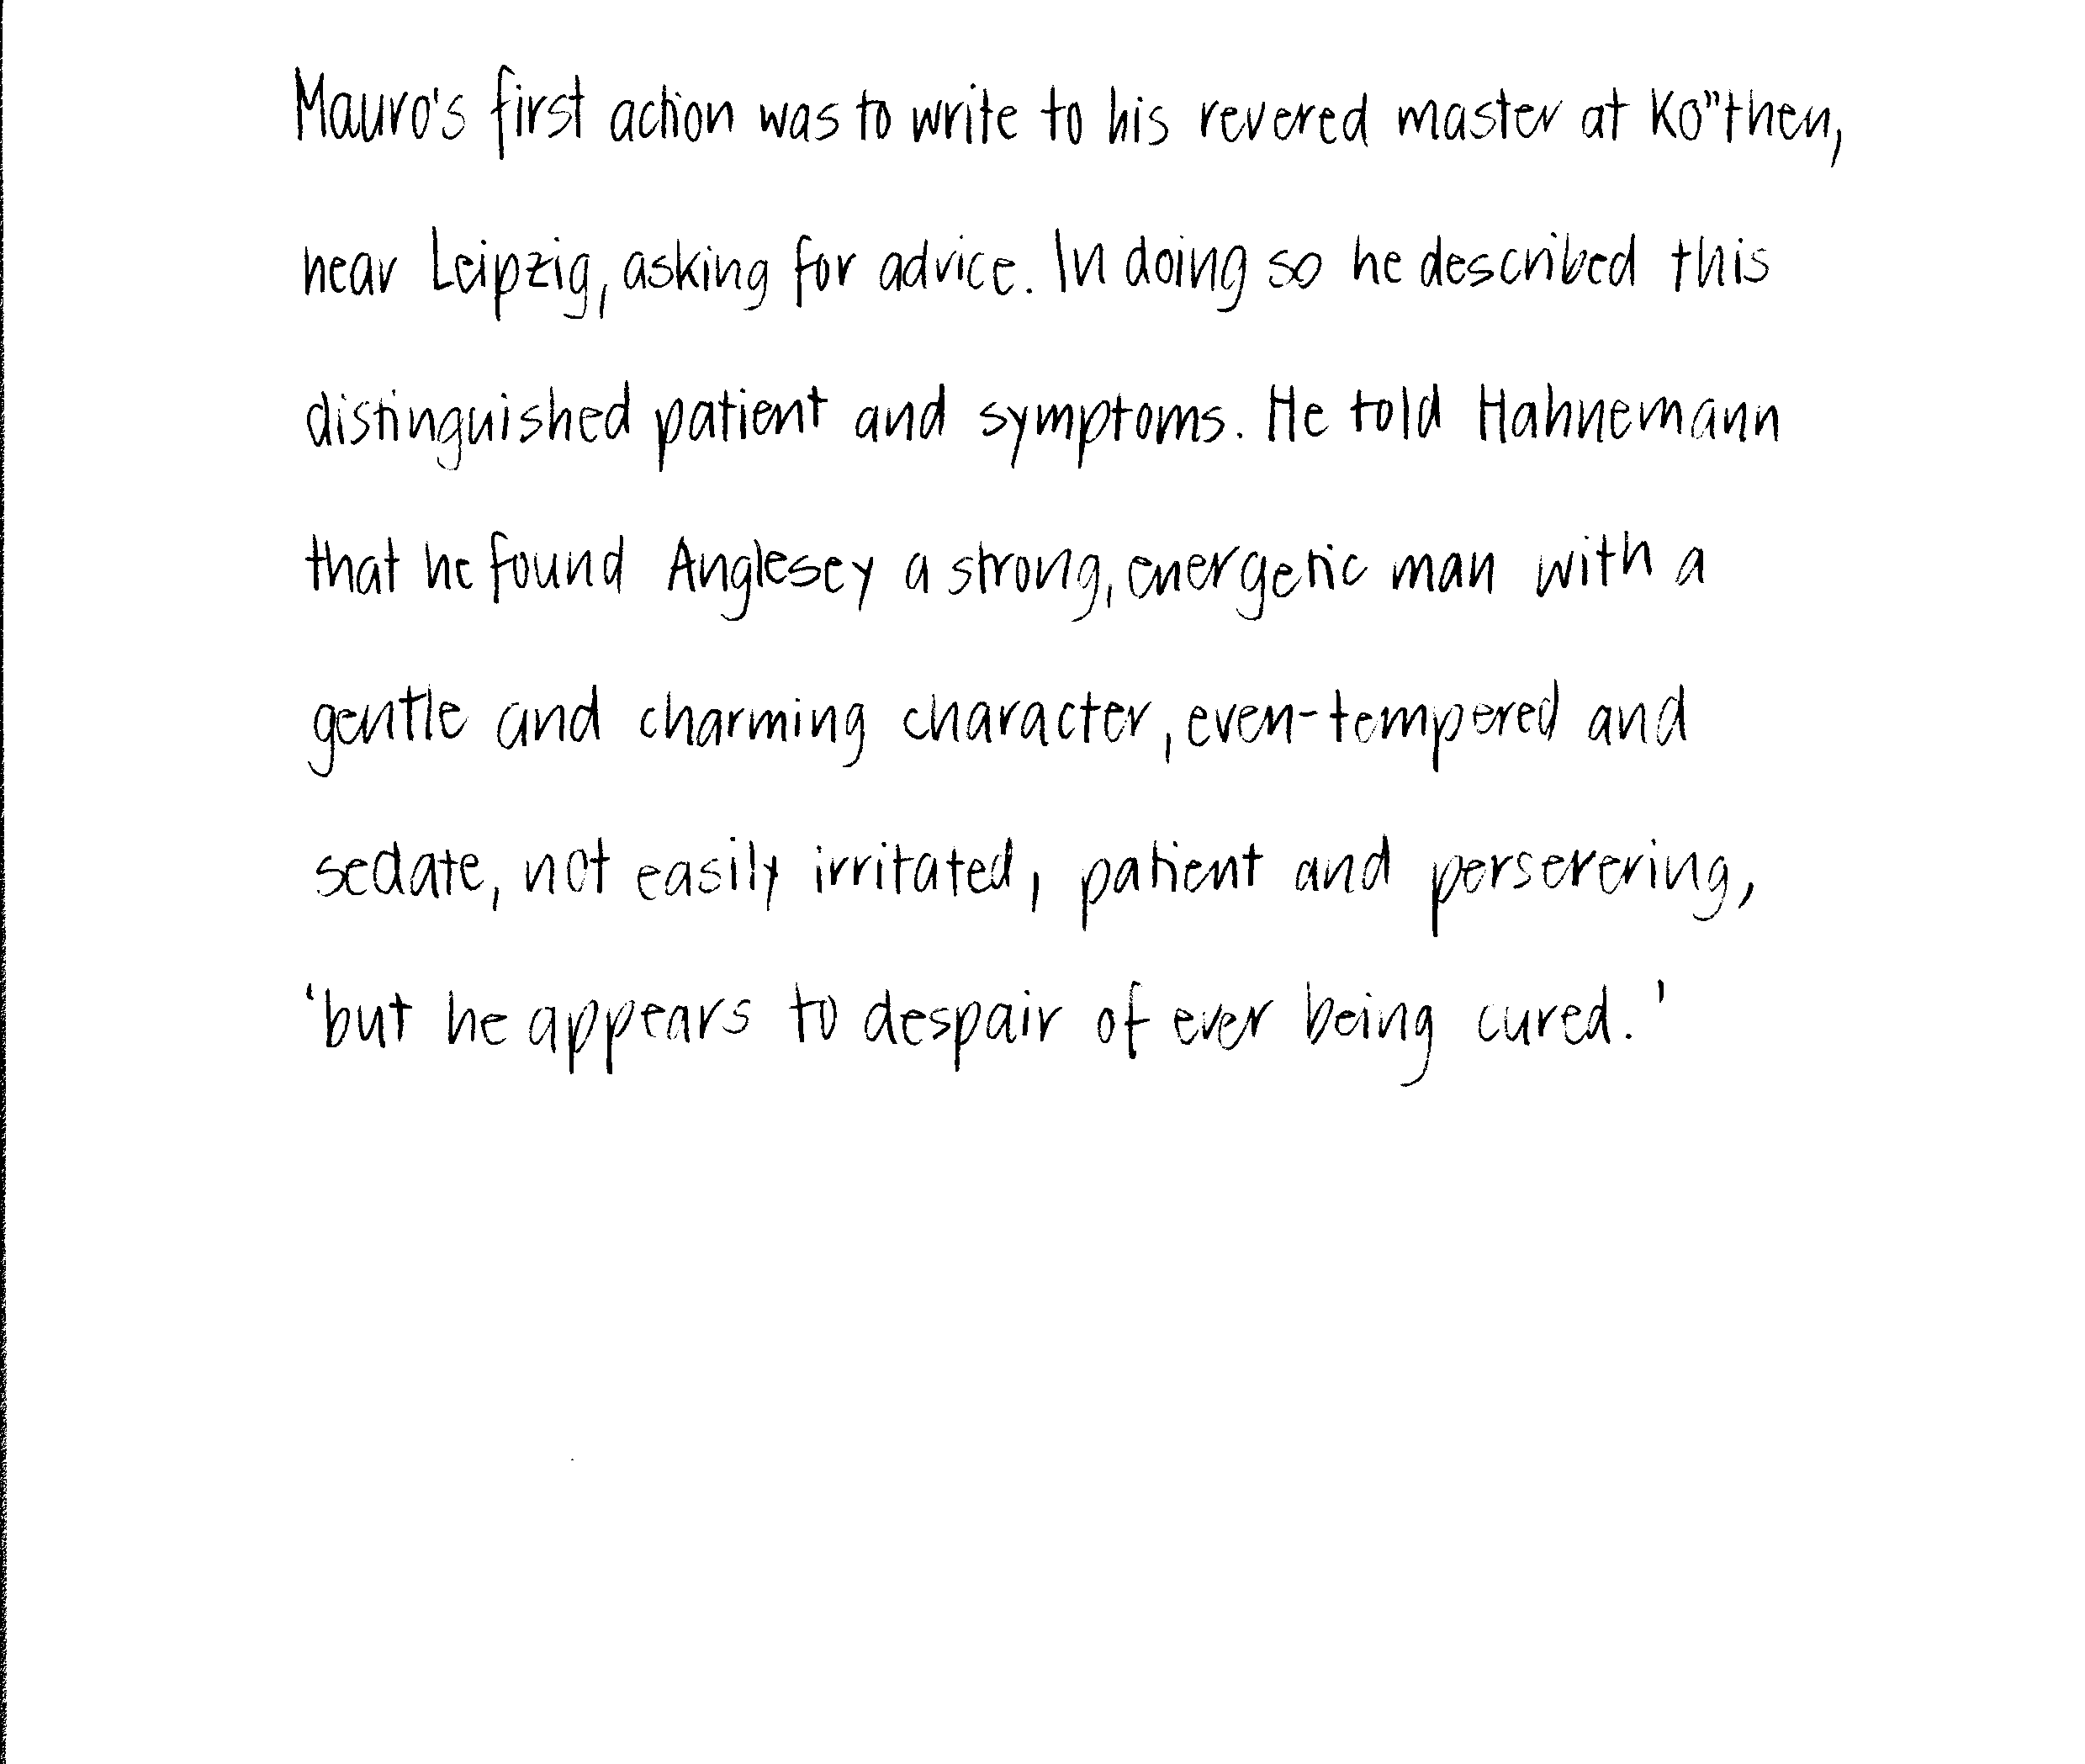 Mauro's first action was to write to his revered master at Ko"then,
near Leipzig, asking for advice. In doing so he described this
distinguished patient and symptoms. He told Hahnemann
that he found Anglesey a strong, energetic man with a
gentle and charming character, even-tempered and
sedate, not easily irritated, patient and perserering,
'but he appears to despair of ever being cured.'